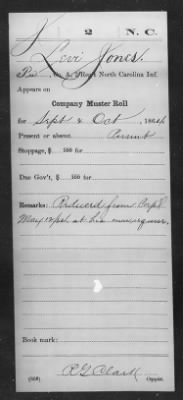 J 2 N. C.
Levi Jones.
Pvt., Co. A, 2 Reg't North Carolina Inf.
Appears on
Company Muster Roll
for Sept & Oct, 1864
Present or absent Present
Stoppage, $ 100 for
Due Gov't, $ 100 for
Remarks: Reduced from Corp'l
May 12/64 at his own request.
Book mark:
R G Clark
Copyist.